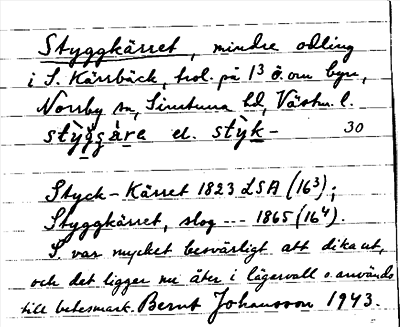 Styggkärret, mindre odling
i S. Kärrbäck, trol. på 1³ ö. om byn,
Norrby sn, Simtuna hd, Västm. l.
stỳg̀gà̀re el. stỳk- 30
Styck-Kärret 1823 LSA (16³);
Styggkärret, slog --- 1865 (16⁴).
S. var mycket besvärligt att dika ut,
och det ligger nu åter i lägervall o. används
till betesmark. Bernt Johansson 1943.